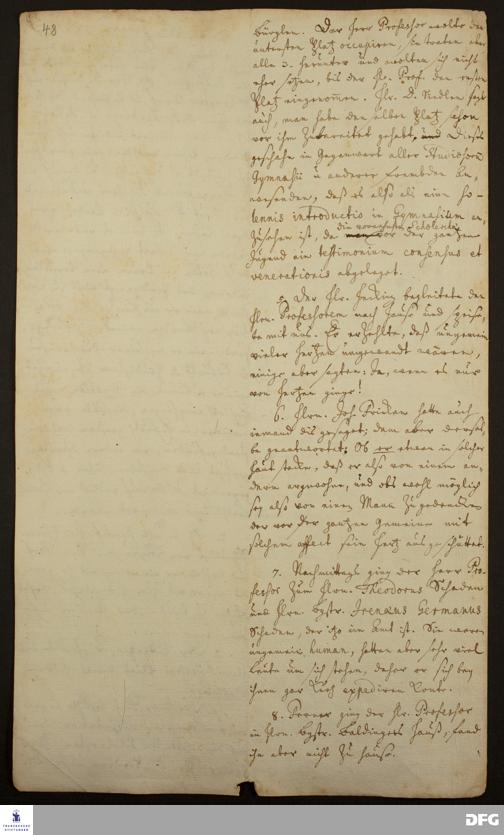 48
Bürglen. Der Herr Professor wolte den
untersten Platz occupiren, sie traten aber
alle 3. herunter und wolten sich nicht
eher setzen, bis der Hr. Prof. den ersten
Platz eingenommen. Hr. D. Riedlen sagt
auch, man habe den selben Platz schon
vor ihm zubereitet gehabt, und dieses
geschahe in Gegenwart aller
Gymnasii u. anderer frembden An-
wesenden, daß es also als eine so-
lennis introductio in Gymnasium an-
zusehen ist, da die vornehmsten Scholarchen
vor der gantzen
Jugend ein testimonium consensus et
venerationis abgeleget.
5. Der Hr. begleitete den
Hrn. Professorem nach Hause und speise-
te mit uns. Er erzehlte, daß ungemein
vieler Hertzen umgewandt wären,
einige aber sagten: Ja, wenn es nur
von Hertzen ginge!
6. Hrn. Joh. Fricken hatte auch
iemand dis gesaget; dem aber dersel-
be geantwortet; Ob er etwan in solcher
Haut stecke, daß er also von einem an-
dern argwohne, und obs wohl möglich
sey also von einem Mann zu gedencken
der vor der gantzen Gemeine mit
solchem affect sein Hertz ausgeschüttet.
7. Nachmittags ging der Herr Pro-
fessor zum Hrn. Theodorus Schaden
und Hrn. Bgstr. Irenæus Germanus
Schaden, der itzo im Amt ist. Sie waren
ungemein human, hatten aber sehr viel
Leute um sich stehen, daher er sich bey
ihnen gar bald expediren konte.
8. Ferner ging der Hr. Professor
in Hrn. Bgstr. Baldingers Hauß, fand
ihn aber nicht zu Hause.
FRANCKESCHE STIFTUNGEN
DFG